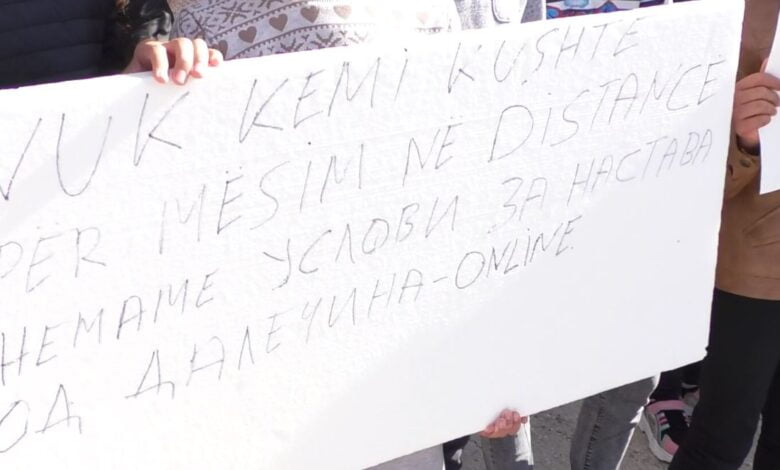 NUK KEMI KUSHTE
PËR MËSIM NË DISTANCË
НЕМАМЕ УСЛОВИ ЗА НАСТАВА
ОД ДАЛЕЧИНА-ONLINE